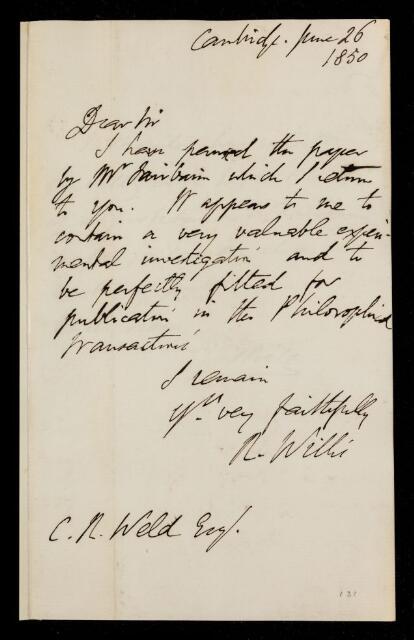 Cambridge. June 26
1850
Dear Sir
I have perused the paper
by Mr Fairbairn which I return
to you. It appears to me to
contain a very valuable experi-
mental investigation and to
be perfectly fitted for
publication in the Philosophical
Transactions
I remain
Yrs very faithfully
R. Willis
C. R. Weld Esq.
131